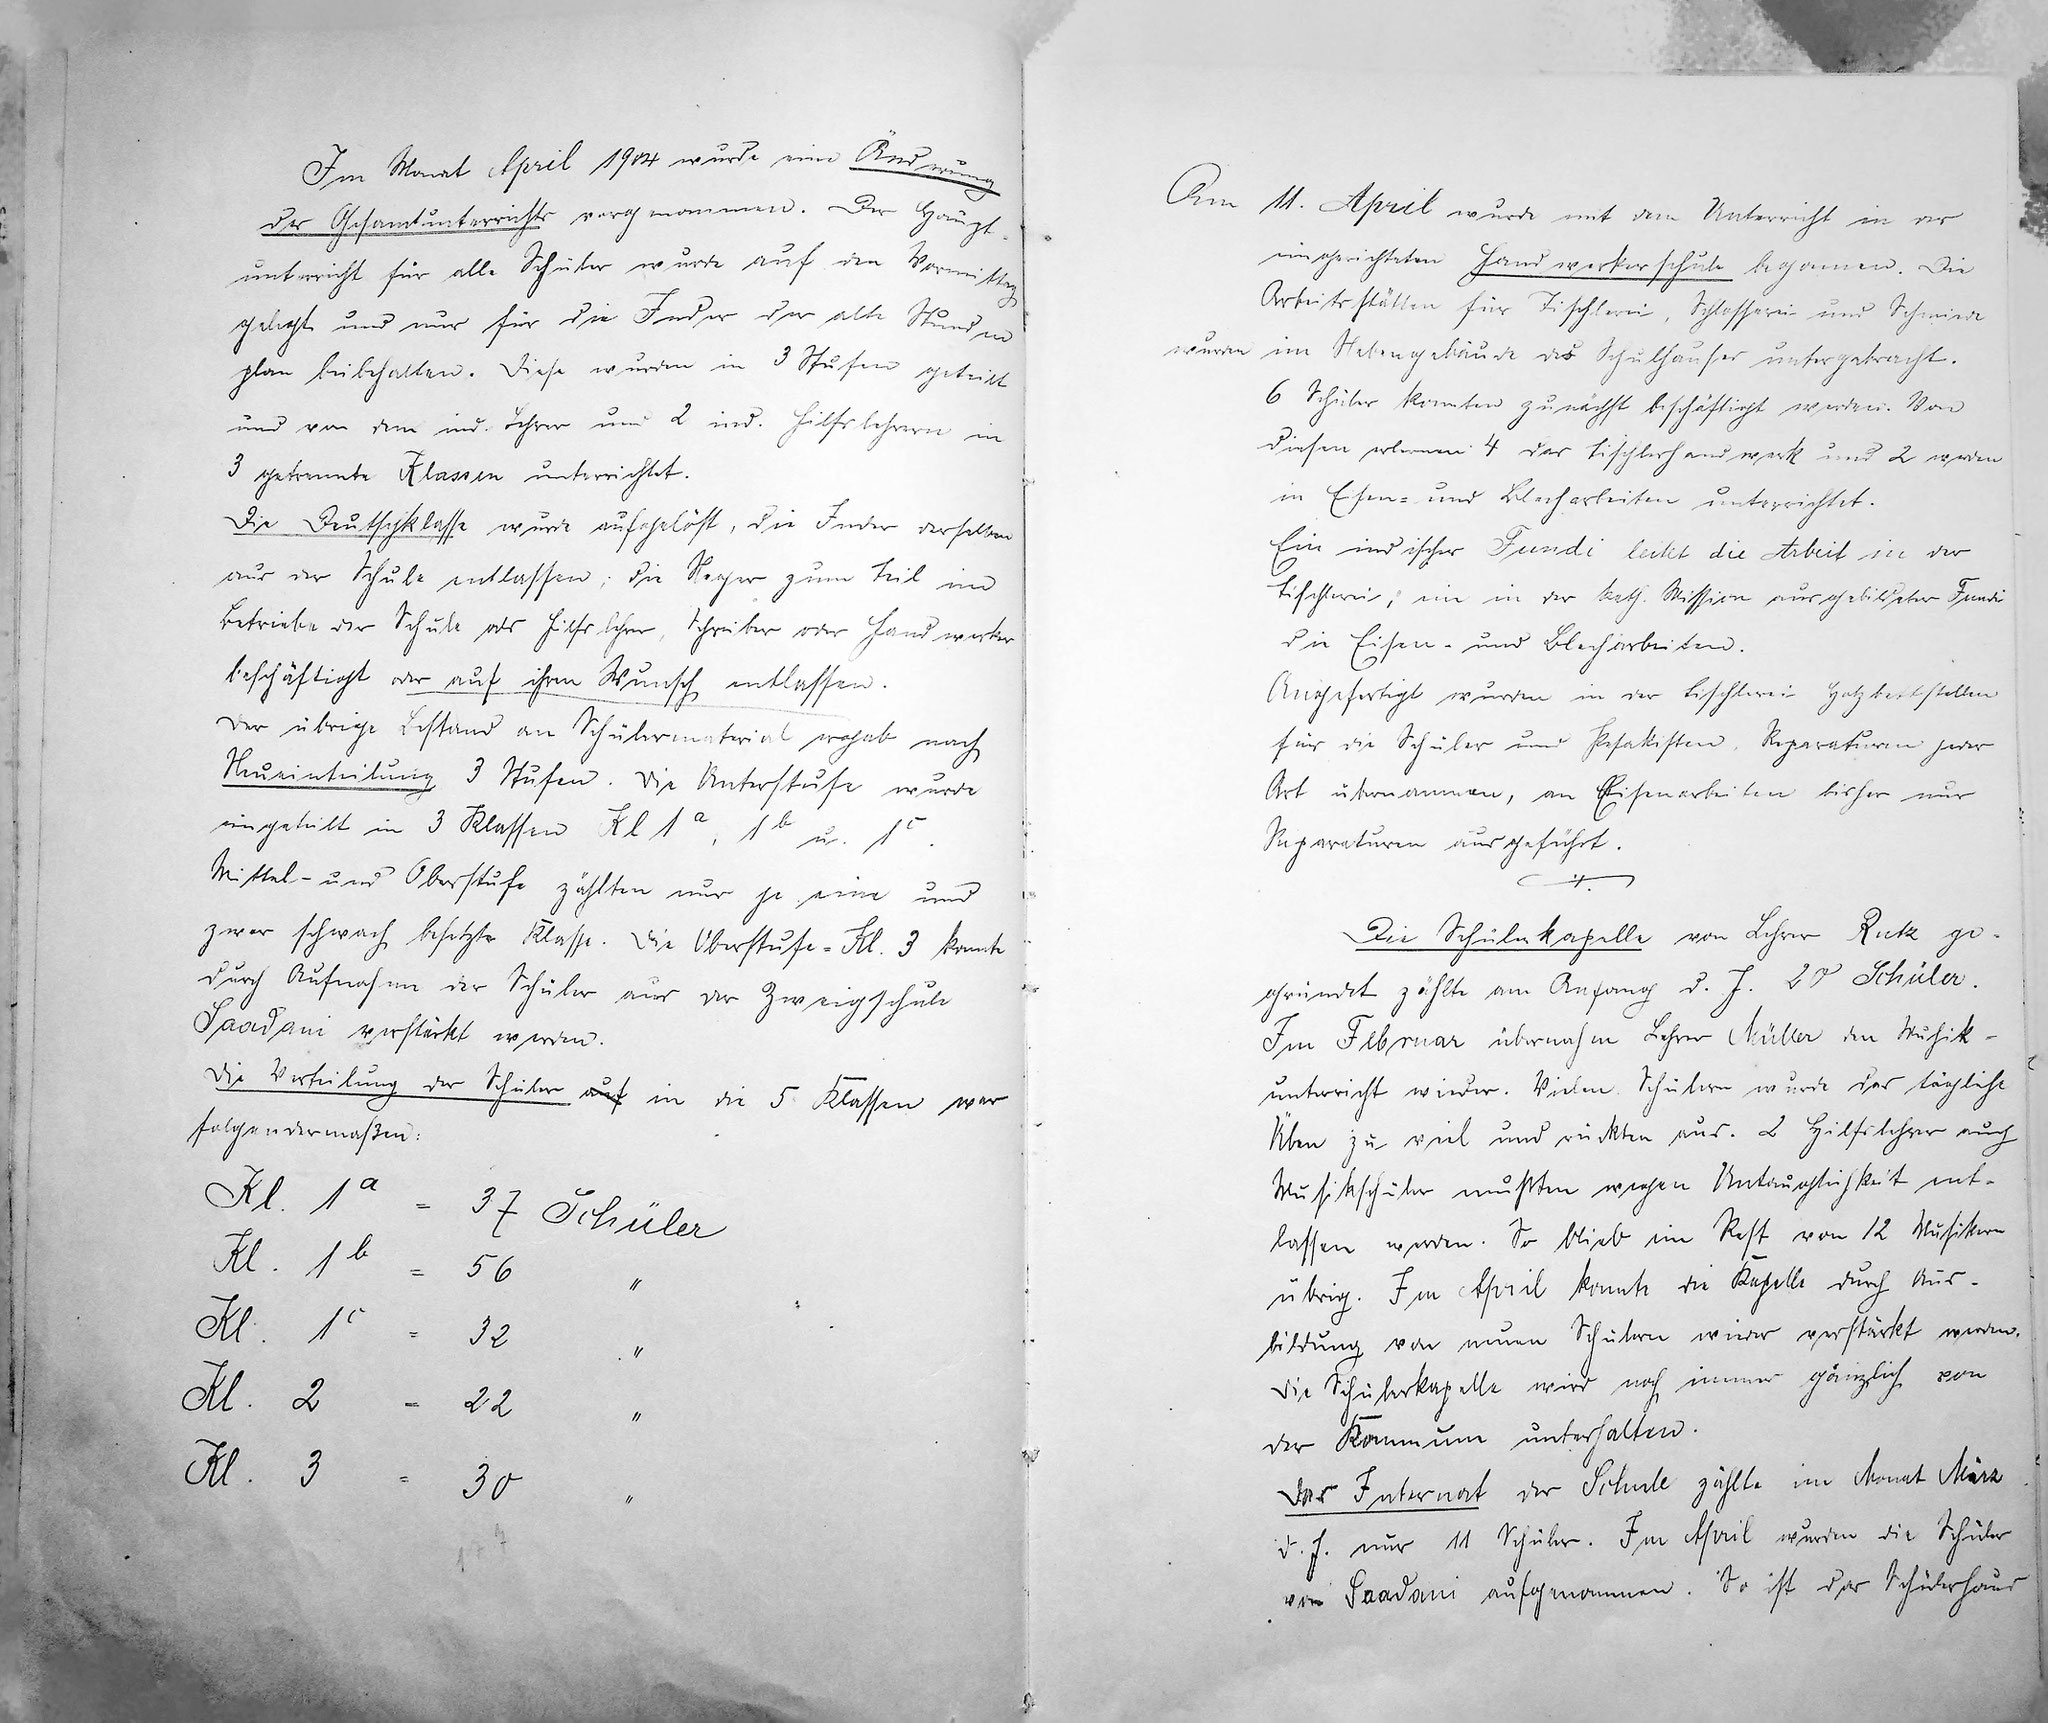 Im Monat April 1904 wurde eine Änderung
des Gesamtunterrichts vorgenommen. Der Haupt-
unterricht für alle Schüler wurde auf den Vormittag
gelegt und nur für die Inder der alte Stunden
plan beibehalten. Diese wurden in 3 Stufen geteilt
und von dem ind. Lehrer und 2 ind. Hilfslehrern in
3 getrennte Klassen unterrichtet.
Die Deutschklasse wurde aufgelöst, die Inder derselben
aus der Schule entlassen; die Neger zum Teil im
Betriebe der Schule als Hilfslehrer, Schreiber oder Handwerker
beschäftigt oder auf ihren Wunsch entlassen.
Der übrige Bestand an Schülermaterial ergab nach
Neueinteilung 3 Stufen. Die Unterstufe wurde
eingeteilt in 3 Klassen Kl 1a, 1b u. 1c.
Mittel- und Oberstufe zählten nur je eine und
zwar schwach besetzte Klasse. Die Oberstufe = Kl. 3 konnte
durch Aufnahme der Schüler aus der Zweigschule
Saadani verstärkt werden.
Die Verteilung der Schüler auf in die 5 Klassen war
folgendermaßen:
Kl. 1a = 37 Schüler
Kl. 1b = 56 "
Kl. 1c = 32 "
Kl. 2 = 22 "
Kl. 3 = 30 "
177
Am 11. April wurde mit dem Unterricht in der
eingerichteten Handwerkerschule begonnen. Die
Arbeitsstätten für Tischlerei, Schlosserei und Schmiede
wurden im Nebengebäude des Schulhauses untergebracht.
6 Schüler konnten zunächst beschäftigt werden. Von
diesen erlernen 4 das Tischlerhandwerk und 2 werden
in Eisen- und Blecharbeiten unterrichtet.
Ein indischer Fundi leitet die Arbeit in der
Tischlerei, ein in der kath. Mission ausgebildeter Fundi
die Eisen- und Blecharbeiten.
Angefertigt wurden in der Tischlerei Holzbettstellen
für die Schüler und Pesakisten, Reparaturen jeder
Art übernommen, an Eisenarbeiten bisher nur
Reparaturen ausgeführt.
Die Schülerkapelle von Lehrer Rutz ge-
gründet zählte am Anfang d. J. 20 Schüler.
Im Februar übernahm Lehrer Müller den Musik-
unterricht wieder. Vielen Schülern wurde das tägliche
Üben zu viel und rückten aus. 2 Hilfslehrer auch
Musikschüler mußten wegen Untauglichkeit ent-
lassen werden. So blieb ein Rest von 12 Musikern
übrig. Im April konnte die Kapelle durch Aus-
bildung von neuen Schülern wieder verstärkt werden.
Die Schülerkapelle wird noch immer gänzlich von
der Kommune unterhalten.
Das Internat der Schule zählte im Monat März
d. J. nur 11 Schüler. Im April wurden die Schüler
von Saadani aufgenommen. So ist das Schülerhaus